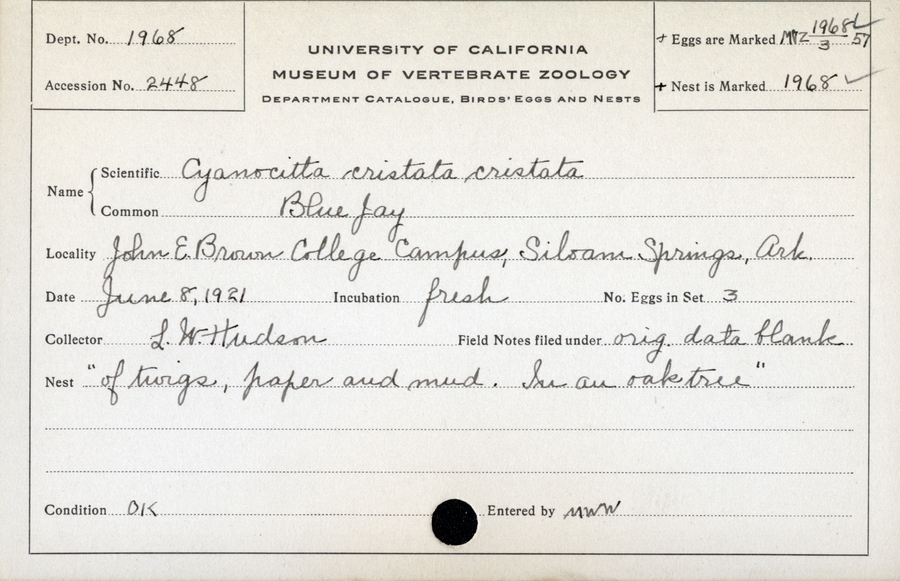 Dept. No. 1968
Accession No. 2448
UNIVERSITY OF CALIFORNIA
MUSEUM OF VERTEBRATE ZOOLOGY
DEPARTMENT CATALOGUE, BIRDS' EGGS AND NESTS
+ Eggs are Marked MVZ 1968/3-57 ✓
+ Nest is Marked 1968 ✓
Name { Scientific Cyanocitta cristata cristata
Common Blue Jay
Locality John E. Brown College Campus, Siloam Springs, Ark.
Date June 8, 1921 Incubation fresh No. Eggs in Set 3
Collector L. W. Hudson Field Notes filed under orig. data blank
Nest "of twigs, paper and mud. In an oak tree"
Condition OK Entered by